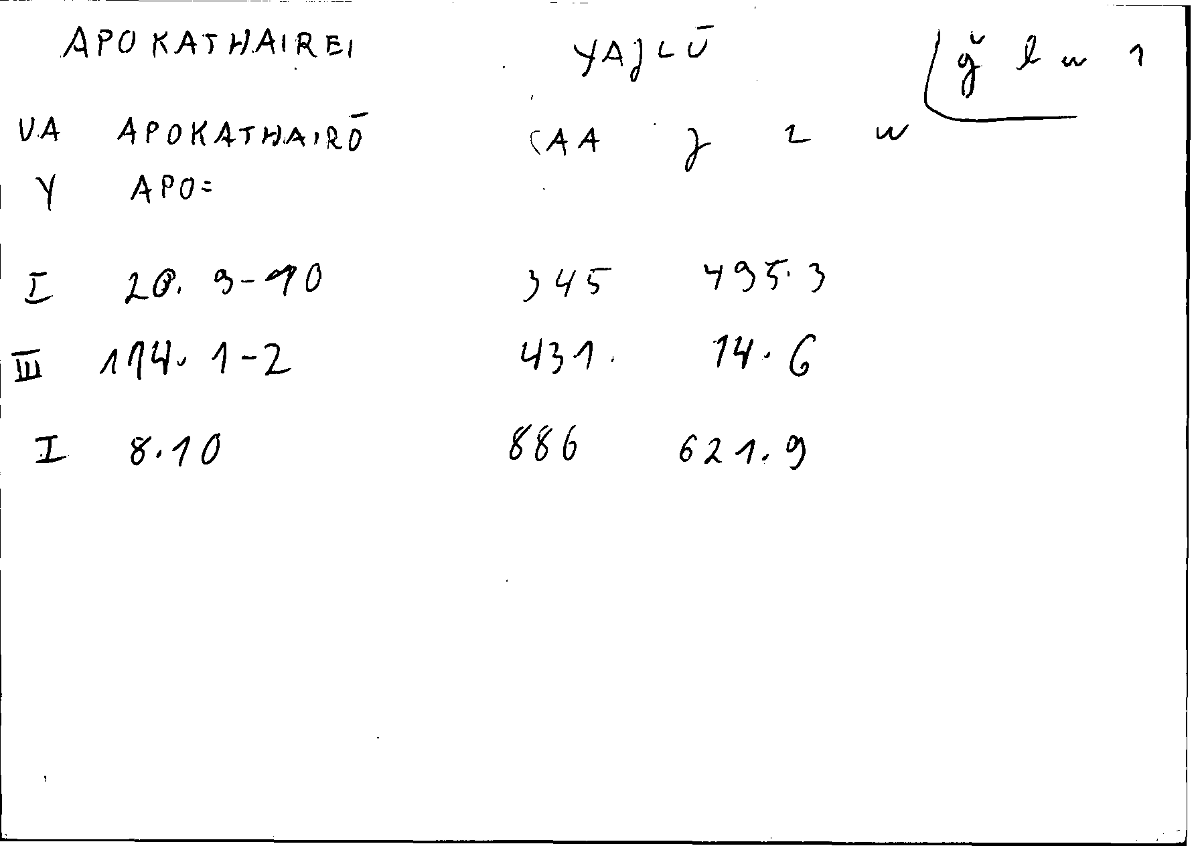 APOKATHAIREI YAJLŪ ǧ l w 1
VA APOKATHAIRŌ CAA J L W
Y APO=
I 20. 9-10 345 495.3
III 114. 1-2 431. 14.6
I 8.10 886 621.9